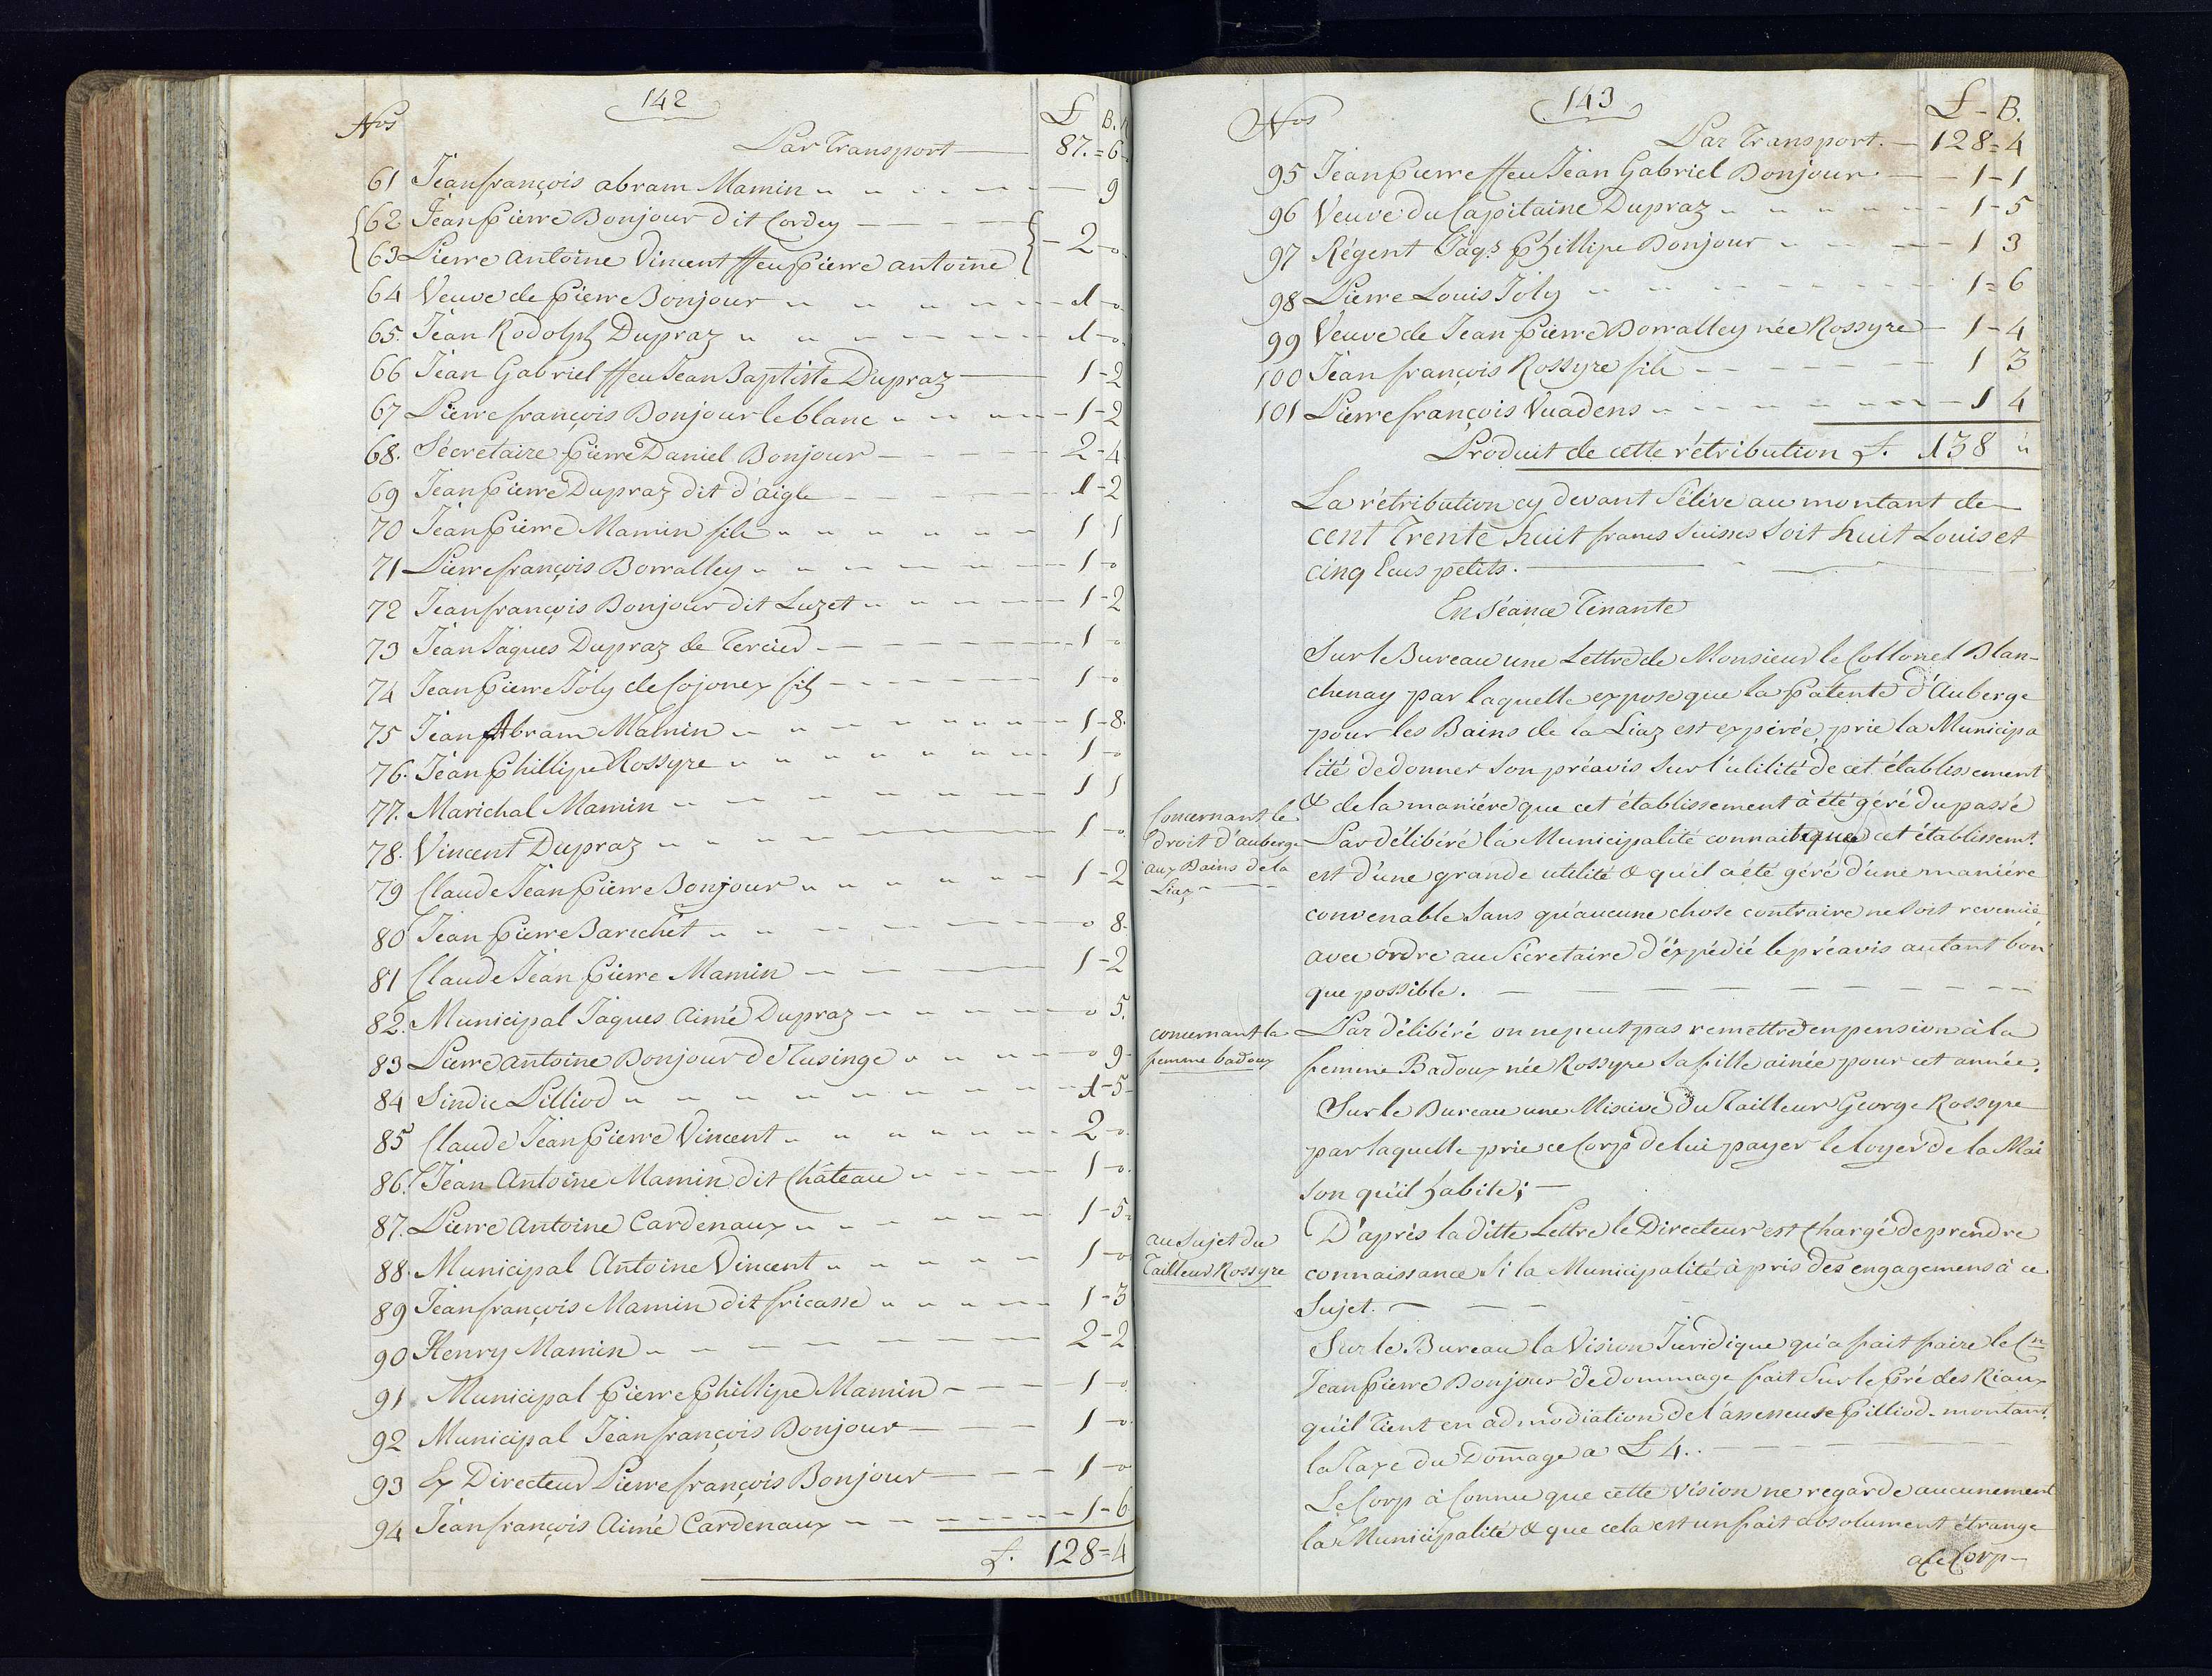 142
Nos £ B.
Par Transport — 87.=6
61 Jeanfrançois abram Mamin 9
62 Jean Pierre Bonjour dit Cordey — 2-0
63 Pierre Antoine Vincent ffeu Pierre antoine
64 Veuve de Pierre Bonjour 1-0
65. Jean Rodolph Dupraz 1-0
66 Jean Gabriel ffeu Jean Baptiste Dupraz 1-2
67 Pierre françois Bonjour le blanc 1-2
68. Sécretaire Pierre Daniel Bonjour 2-4
69 Jean Pierre Dupraz dit d'aigle 1-2
70 Jean Pierre Mamin fils 1 1
71 Pierre françois Borralley 1-0
72 Jean françois Bonjour dit Luzet 1-2
73 Jean Jaques Dupraz de Tercier 1-0
74 Jean Pierre Joly de Cojonex fils 1-0
75 Jean Abram Mamin 1-8.
76. Jean Phillipe Rossyre 1-0
77. Marichal Mamin 1 1
78. Vincent Dupraz 1-0
79 Claude Jean Pierre Bonjour 1-2
80 Jean Pierre Barichet 0 8.
81 Claude Jean Pierre Mamin 1-2
82. Municipal Jaques Aimé Dupraz 0 5.
83 Pierre Antoine Bonjour de Tusinge 0 9
84 Sindic Pilliod 1-5
85 Claude Jean Pierre Vincent 2-0
86. Jean Antoine Mamin dit Château 1-0
87. Pierre Antoine Cardenaux 1-5
88. Municipal Antoine Vincent 1-0
89 Jean françois Mamin dit fricasse 1-3
90 Henry Mamin 2-2
91 Municipal Pierre Phillipe Mamin 1-0
92 Municipal Jean françois Bonjour 1-0
93 Ex Directeur Pierre françois Bonjour 1-0
94 Jean françois Aimé Cardenaux 1-6
£. 128=4
143
Nos £-B.
Par Transport. — 128=4
95 Jean Pierre ffeu Jean Gabriel Bonjour 1-1
96 Veuve du Capitaine Dupraz 1-5
97 Régent Jaqs Phillipe Bonjour 1 3
98 Pierre Louis Joly 1=6
99 Veuve de Jean Pierre Borralley née Rossyre 1-4
100 Jean françois Rossyre fils 1 3
101 Pierre françois Vuadens 1 4
Produit de cette rétribution £. 138 "
La rétribution cy devant S'élève au montant de
cent Trente huit francs Suisses Soit huit Louis et
cinq Ecus petits.
En Séance Tenante
Sur le Bureau une Lettre de Monsieur le Collonel Blan-
chenay par laquelle expose que la Patente d'Auberge
pour les Bains de la Liaz est expirée, prie la Municipa
lité de donner son préavis sur l'utilité de cet établissement
& de la maniére que cet établissement à été géré du passé
Concernant le
droit d'auberge
aux Bains de la
Liaz
Par délibéré la Municipalité connait que cet établissemt.
est d'une grande utilité & qu'il a été géré d'une maniére
convenable sans qu'aucune chose contraire ne soit revenüe,
avec ordre au Sécretaire d'éxpédié le préavis autant bon
que possible.
concernant la
femme badoux
Par délibéré on ne peut pas remettre en pension à la
femme Badoux née Rossyre sa fille ainée pour cet année.
Sur le Bureau une Missive du Tailleur George Rossyre
par laquelle prie ce Corp de lui payer le loyer de la Mai
son qu'il habite;
au Sujet du
Tailleur Rossyre
D'après la ditte Lettre le Directeur est Chargé de prendre
connaissance Si la Municipalité à pris des engagemens à ce
Sujet.
Sur le Bureau la Vision Juridique qu'a fait faire le Cn
Jean Pierre Bonjour de dommage fait Sur le Pré des Riaux
qu'il Tient en admodiation de l'assesseuse Pilliod. montant
la Taxe du Domage a £ 4.
Le Corp à Connu que cette Vision ne regarde aucunement
la Municipalité & que cela est un fait absolument étrange
a ce Corp